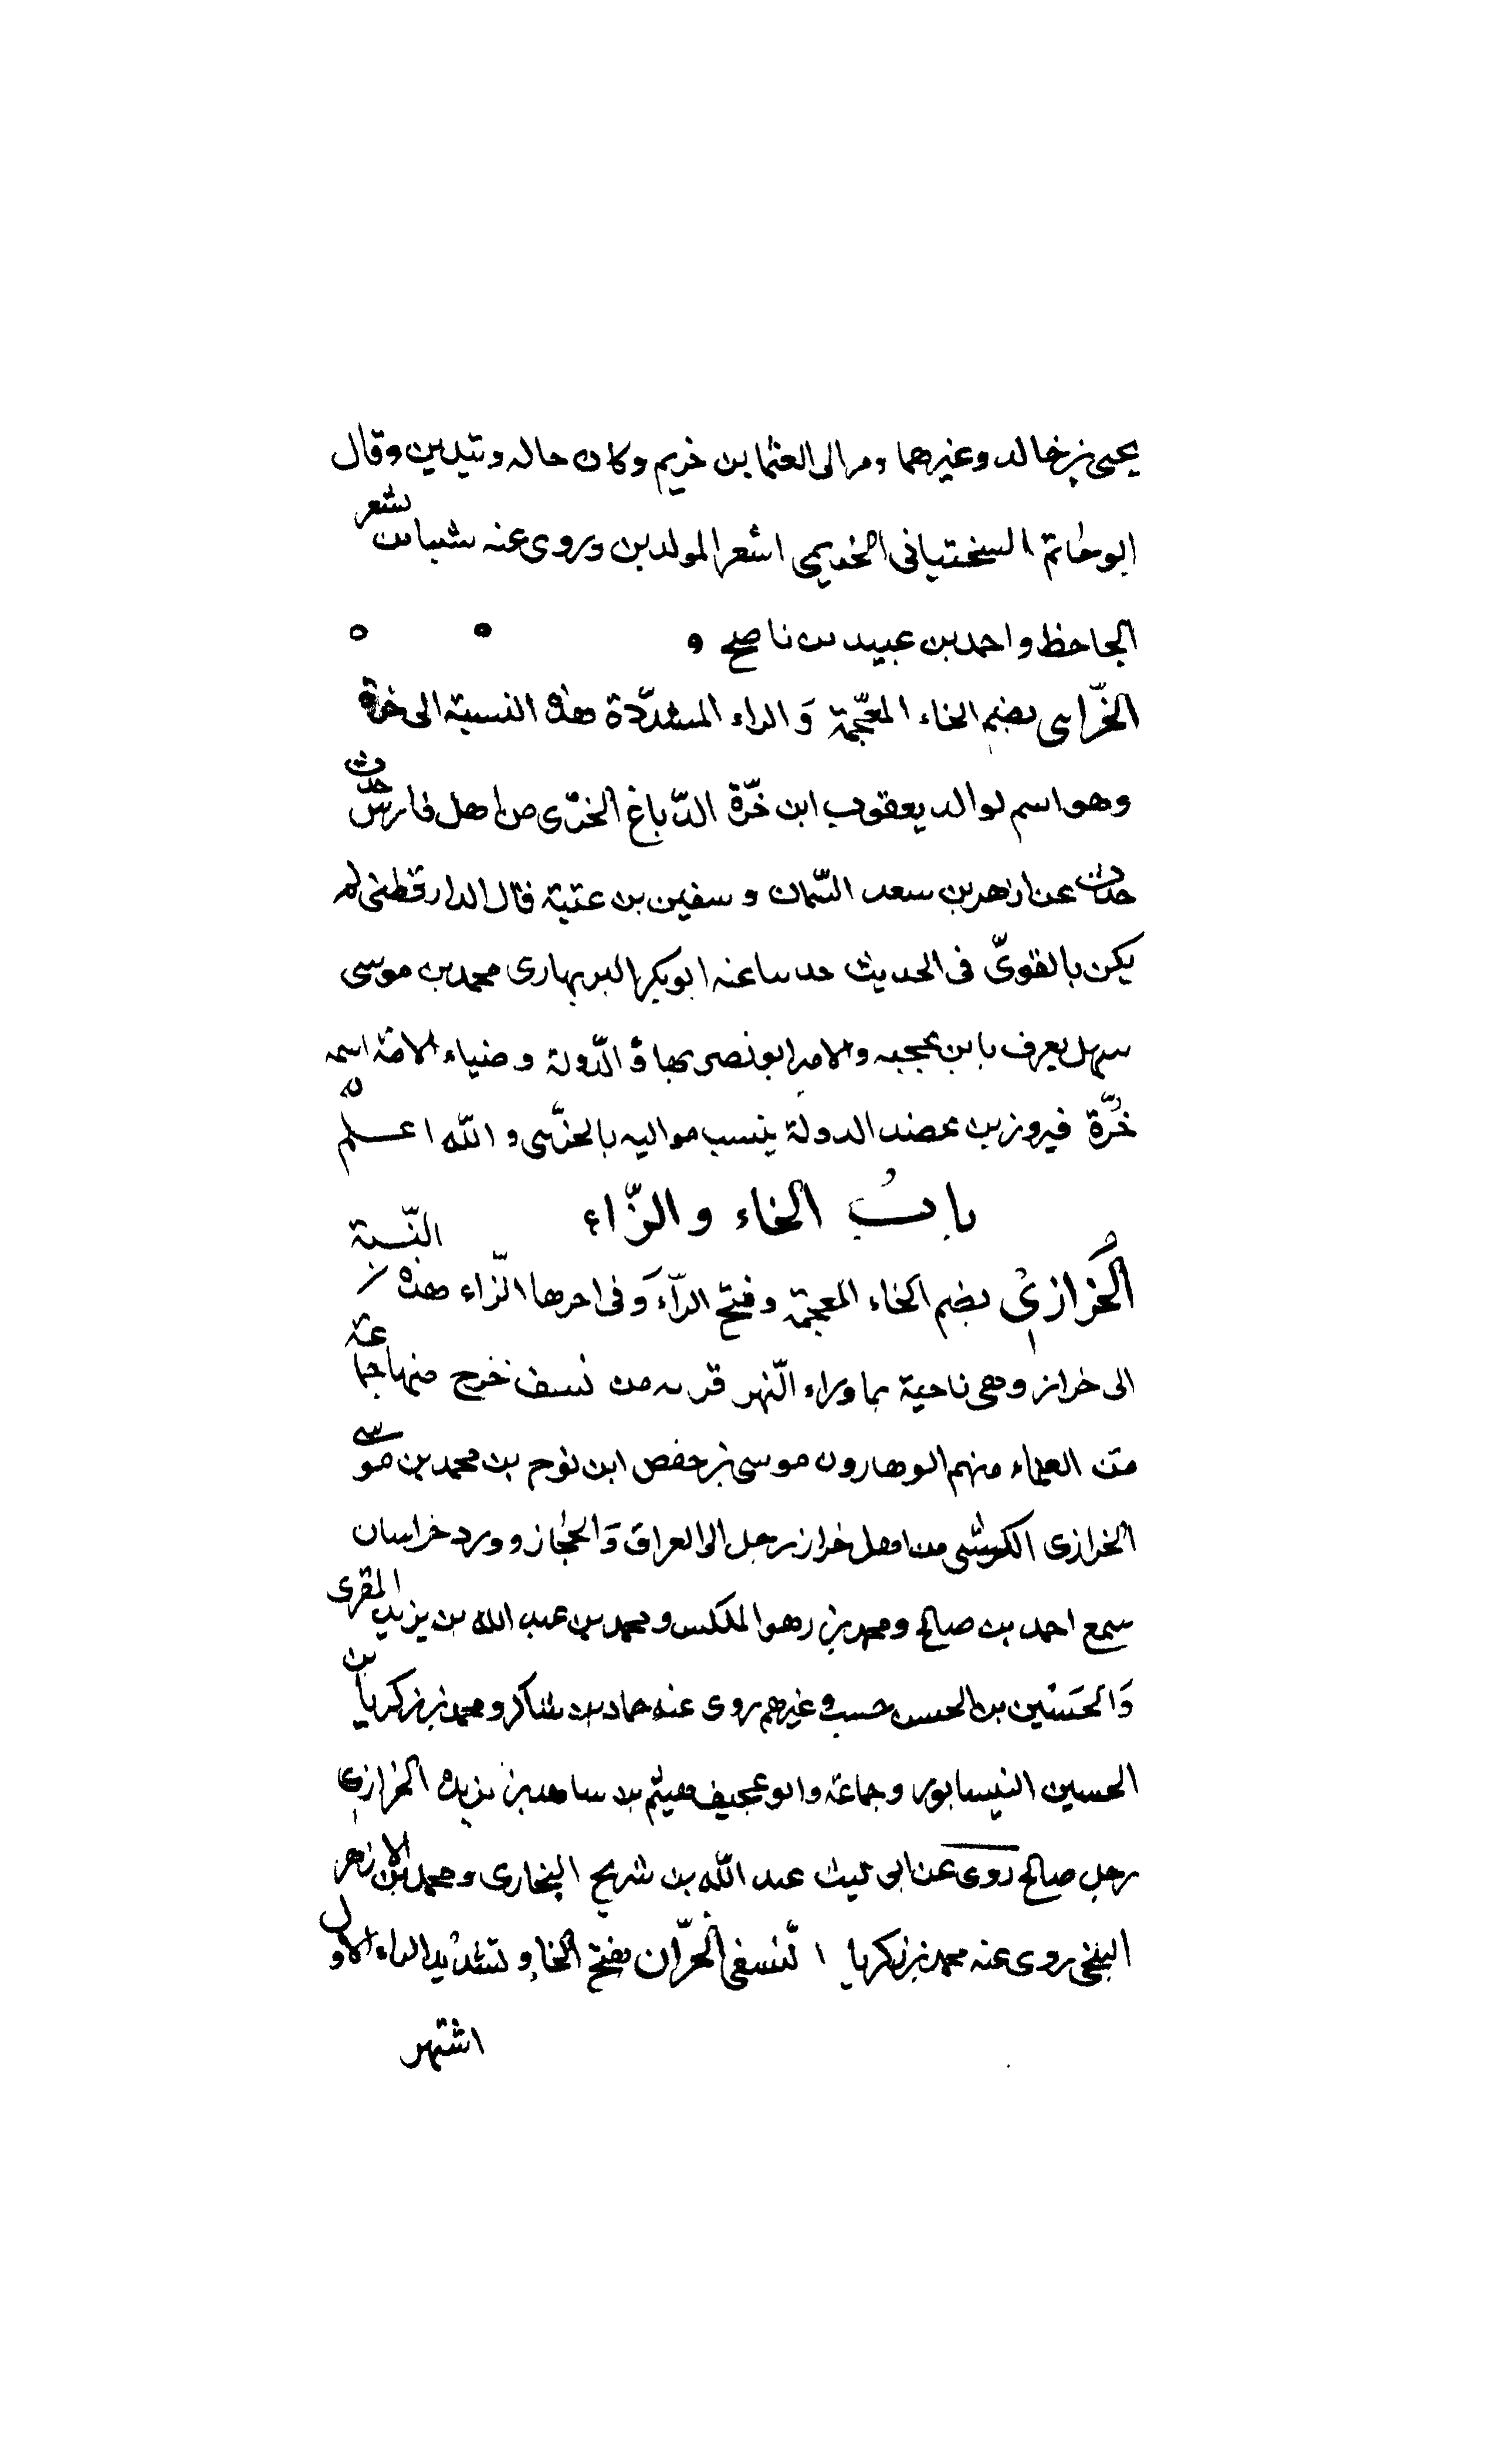 يحيى بن خالد وغيرهما ومر الى العثما بن خريم وكان حاله وتيدين وقال
ابو حاتم السختياني الخريمي اشعر المولدين وروى عنه شباس شعر
الجاحظ واحمد بن عبيد بن ناصح ه
الخّراى بضم الخاء المعجّمة وَالراء المشدّدة هذه النسبة الى خرة
وهو اسم لوالد يعقوب ابن خّرة الدّباغ الخرّى من اهل فارس حدث
حدث عن ازهر بن سعد السّمان و سفين بن عتبة قال الدارقطنى لم
يكن بالقوىّ فى الحديث حدسا عنه ابو بكر البربهارى محمد بن موسى
سهل يعرف بابن والامير ابو نصر بهاؤ الدّولة و ضياء الامة اسمه
خُرّة فيروز بن عضد الدولة ينسب مواليه بالخرّى و الله اعلم
بابُ الخاء والزّاء
الخُرازىْ بضم الخاء المعجمة وفتح الرآء وَفى اخرها الزّاء هذه النّسبة
الى خراز وهى ناحية بما وراء النّهر قرىه من نسف خرج منها جماعة
من العلماء منهم ابو هارون موسى بن حفص ابن نوح بن محمد بن موسى
الخرازى الكشى من اهل خراز رحل الى العراق وَالحجاز وورد خراسان
سمع احمد بن صالح ومحمد بن ومحمد بن عبد الله بن يزيد المقرى
وَالحسَين بن الحسن وغيرهم روى عنه حماد بن شاكر ومحمد بن زكريا بن
الحسين النيسابور وجماعة وابو عجيف هيثم بن ساهد بن بزيده الخرازى
رجل صالح روى عن ابى ليث عبد الله بن شريح البخارى ومحمد بن الازهر
البلخى روى عنه محمد بن زكريا النّسفى الخرّان بفتح الخاء وتشديد الراء الاول
اشتهر